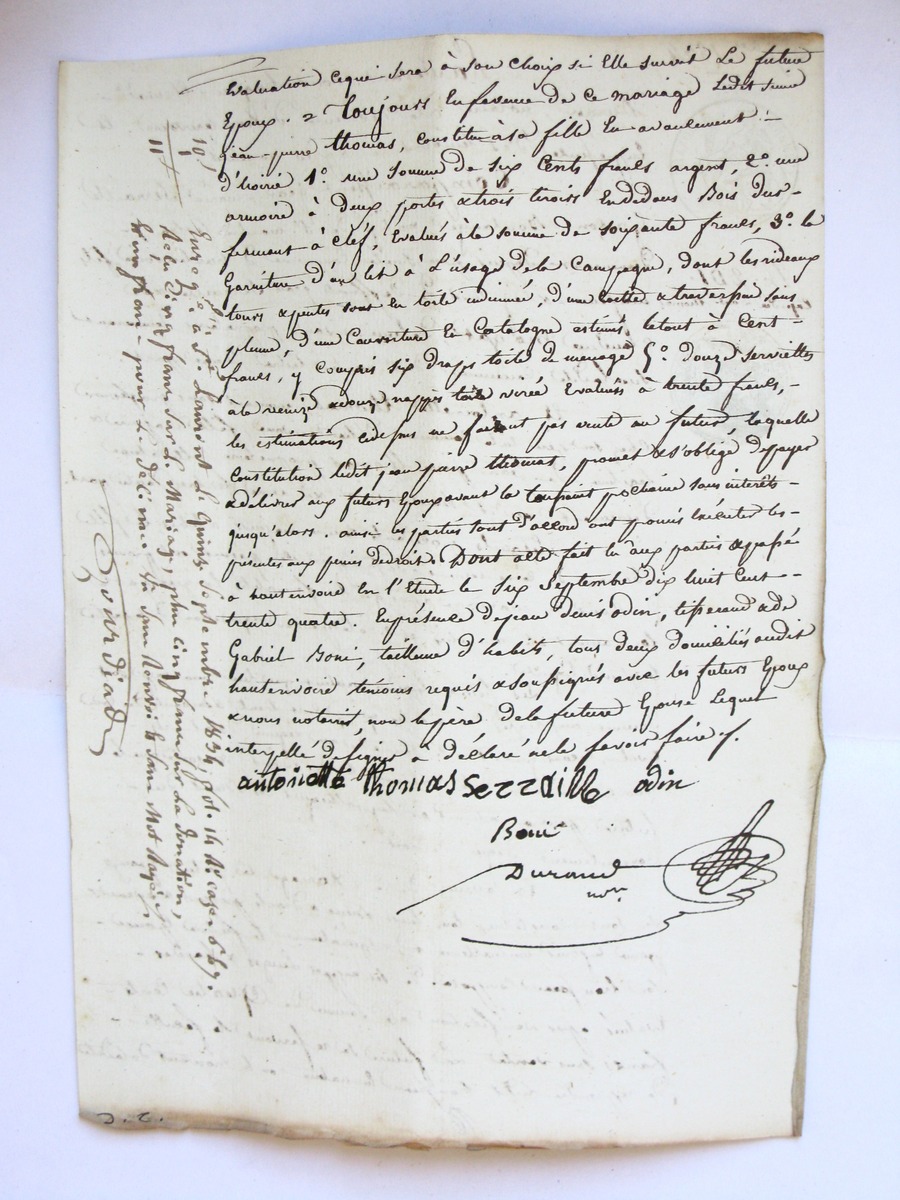 Evaluation cequi sera à son choix si Elle survit Le future
Epoux. 2 Toujours Enfaveur de ce mariage Ledit sieur
jean-pierre thomas, constitue àsa fille En avancement
d'hoirie 1º une somme de six cents francs argent, 2º une
armoire à deux portes &trois tiroirs Endedans Bois dur
fermant à clef, Evalués àla somme de soixante francs, 3º la
Garniture d'un lit à L'usage dela Campagne, dont les rideaux
tours &pentes sont En toile indienne, d'une Coette & traversin sans
plume, d'une Couverture En Catalogne estimés letout à Cent
francs, y compris six draps toile de menage 5º douze serviettes
àla &douze nappes toile Evalués à trente francs,
les estimations cidessus ne faisant pas vente au futur, laquelle
Constitution ledit jean pierre thomas, promet &s'oblige depayer
&délivrer aux futurs Epoux avant la toussaint pochaine sans interêts
jusqu'alors. ainsi les parties sont d'accord ont promis Exécuter les
présentes aux peines dedroit. Dont acte fait lu aux parties &passé
à hautrivoire En l'Etude le six Septembre dix huit Cent
trente quatre. Enprésence dejean denis odin, tisserand &de
Gabriel Boni, tailleur d'habits, tous deux domiciliés audit
hautrivoire temoins requis &soussignés avec les futurs Epoux
&nous notaire, non lepère delafuture Epouse Lequel
interpellé designer a déclaré nele savoir faire ./.
antoinette thomas sezzaille odin
Boni
Durand
nore
10
1
11
Enregé à St Laurent le quinze septembre 1834, fol. 14 Re cases 6 & 7.
Reçu cinq francs sur le Mariage, plus cinq francs sur la donation,
un franc pour le décime